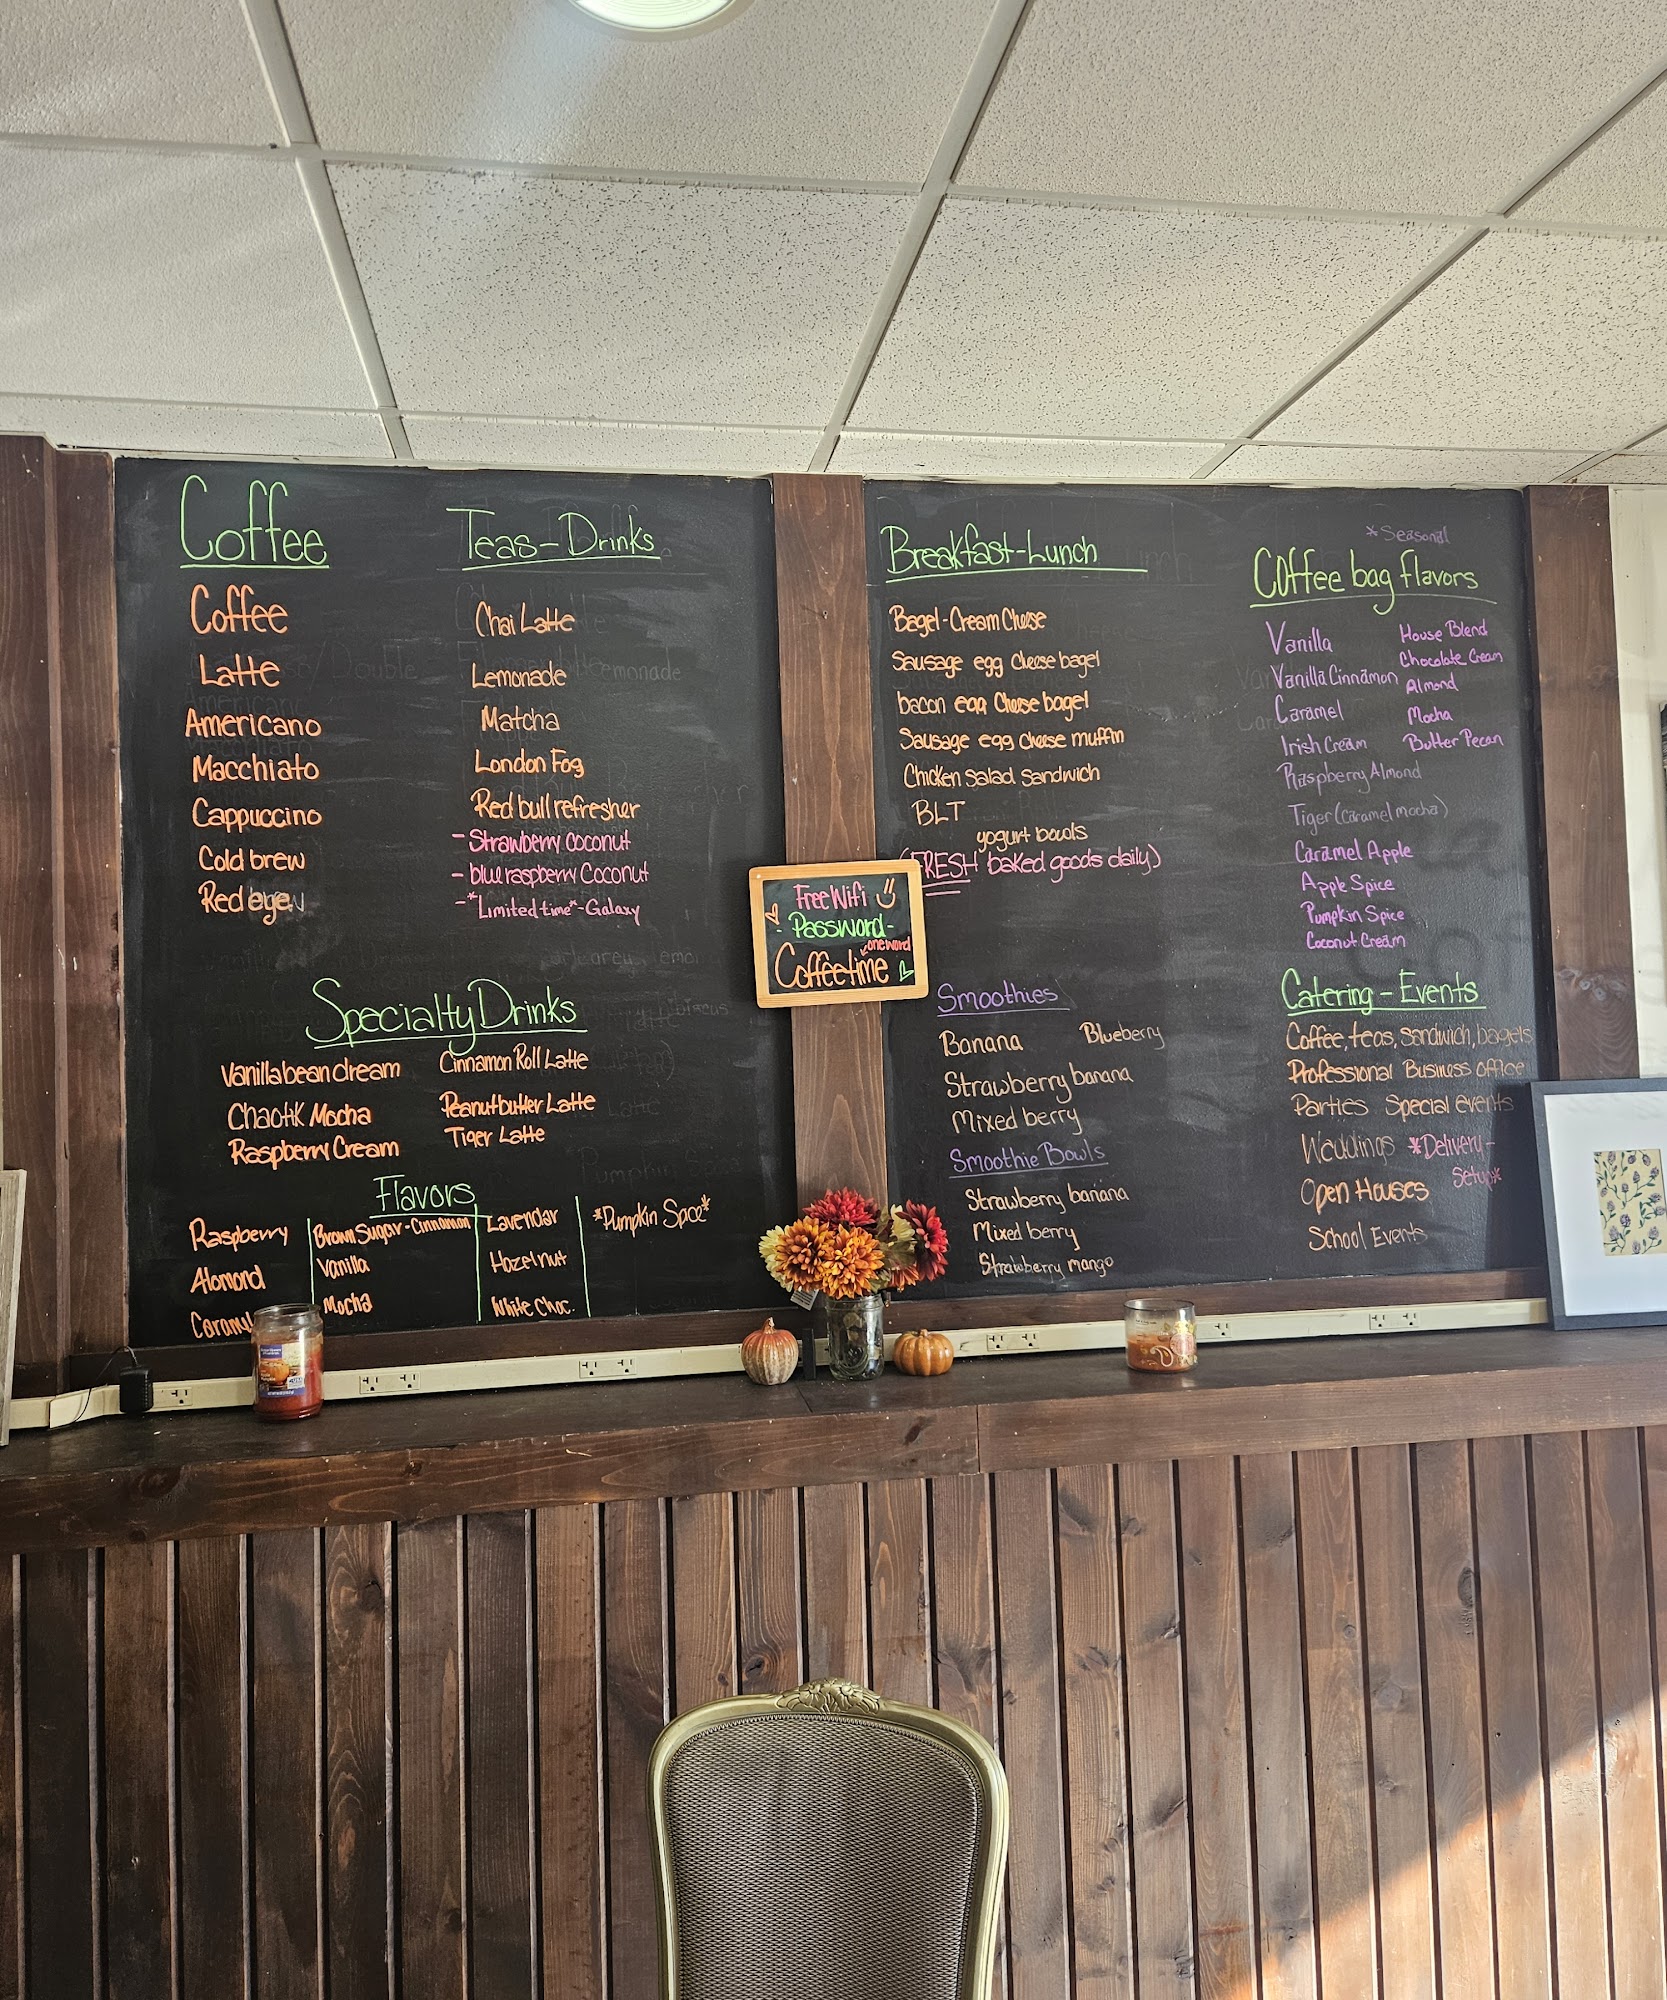 Coffee
Coffee
Latte
Americano
Macchiato
Cappuccino
Cold brew
Red eye
Teas-Drinks
Chai Latte
Lemonade
Matcha
London Fog
Red bull refresher
- Strawberry coconut
- blue raspberry Coconut
- *Limited time*-Galaxy
Specialty Drinks
Vanilla bean dream
Chaotik Mocha
Raspberry Cream
Cinnamon Roll Latte
Peanutbutter Latte
Tiger Latte
Flavors
Raspberry
Alomond
Caramel
Brown Sugar-Cinnamon
Vanilla
Mocha
Lavendar
Hazelnut
White Choc.
*Pumpkin Spice*
Free Wifi
- Password-
one word
Coffeetime
Breakfast-Lunch
Bagel-Cream Cheese
Sausage egg cheese bagel
bacon egg cheese bagel
Sausage egg cheese muffin
Chicken salad sandwich
BLT
yogurt bowls
(FRESH baked goods daily)
Smoothies
Banana
Blueberry
Strawberry banana
Mixed berry
Smoothie Bowls
Strawberry banana
Mixed berry
Strawberry mango
*Seasonal
Coffee bag flavors
Vanilla
Vanilla Cinnamon
Caramel
Irish Cream
Raspberry Almond
Tiger (caramel mocha)
Caramel Apple
Apple Spice
Pumpkin Spice
Coconut Cream
House Blend
Chocolate Cream
Almond
Mocha
Butter Pecan
Catering - Events
Coffee, teas, sandwich, bagels
Professional Business office
Parties Special events
Weddings *Delivery-
Setup*
Open Houses
School Events